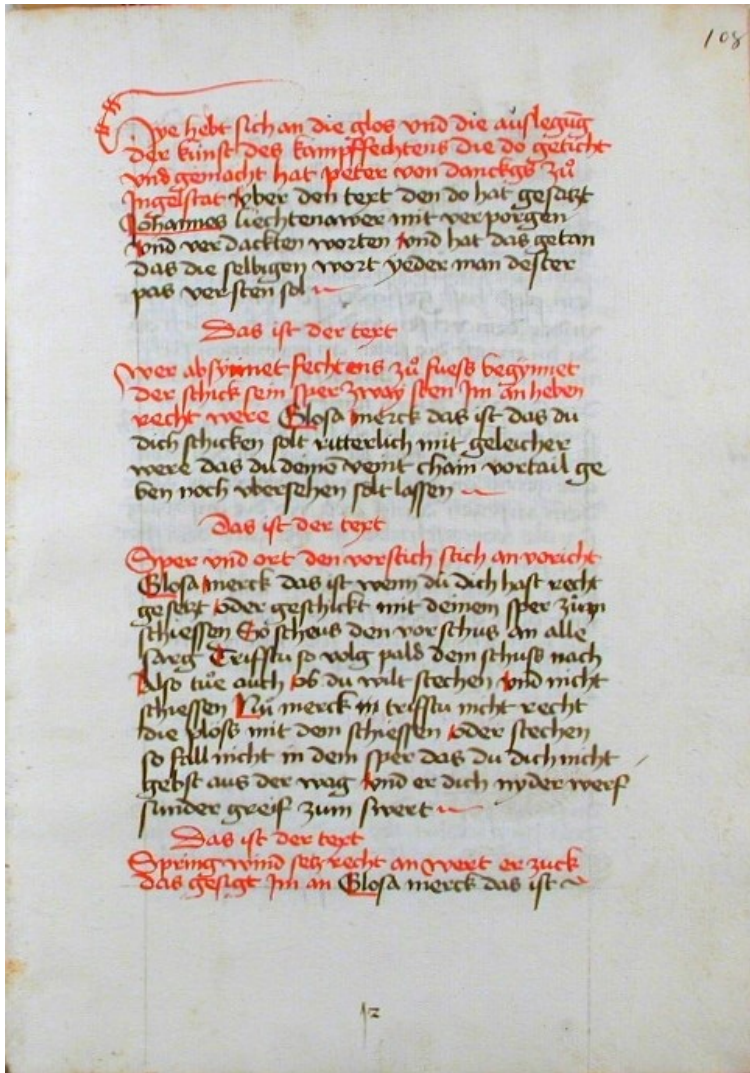 108
Hye hebt sich an die glos vnd die auslegūg
der kunst des kampffechtens die do geticht
vnd gemacht hat peter von danckgs zů
Ingelstat vber den text den do hat gesatzt
Johannes liechtenawer mit verporgen
vnd verdackten worten vnd hat das getan
das die selbigen wort yeder man dester
pas versten sol
Das ist der text
wer absynnet fechtens zů fuess begynnet
der schick sein sper zway sten Im an heben
recht were Glosa merck das ist das du
dich schicken solt ritterlich mit geleicher
were das du deinē veint chain vortail ge
ben noch vbersehen solt lassen
Das ist der text
Sper vnd ort den vorstich stich an voricht
Glosa merck das ist wenn du dich hast recht
gesetzt oder geschickt mit deinem sper zům
schiessen So scheus den vorschus an alle
sarg Trifftu so volg pald dem schuss nach
Also tůe auch ob du wilt stechen vnd nicht
schiessen Nů merck trifftu nicht recht
die plöss mit dem schiessen oder stechen
so fall nicht in dem sper das du dich nicht
gebst aus der wag vnd er dich nyder werf
sunder greif zum swert
Das ist der text
Spring wind setz recht an wert er zuck
das gesigt Im an Glosa merck das ist